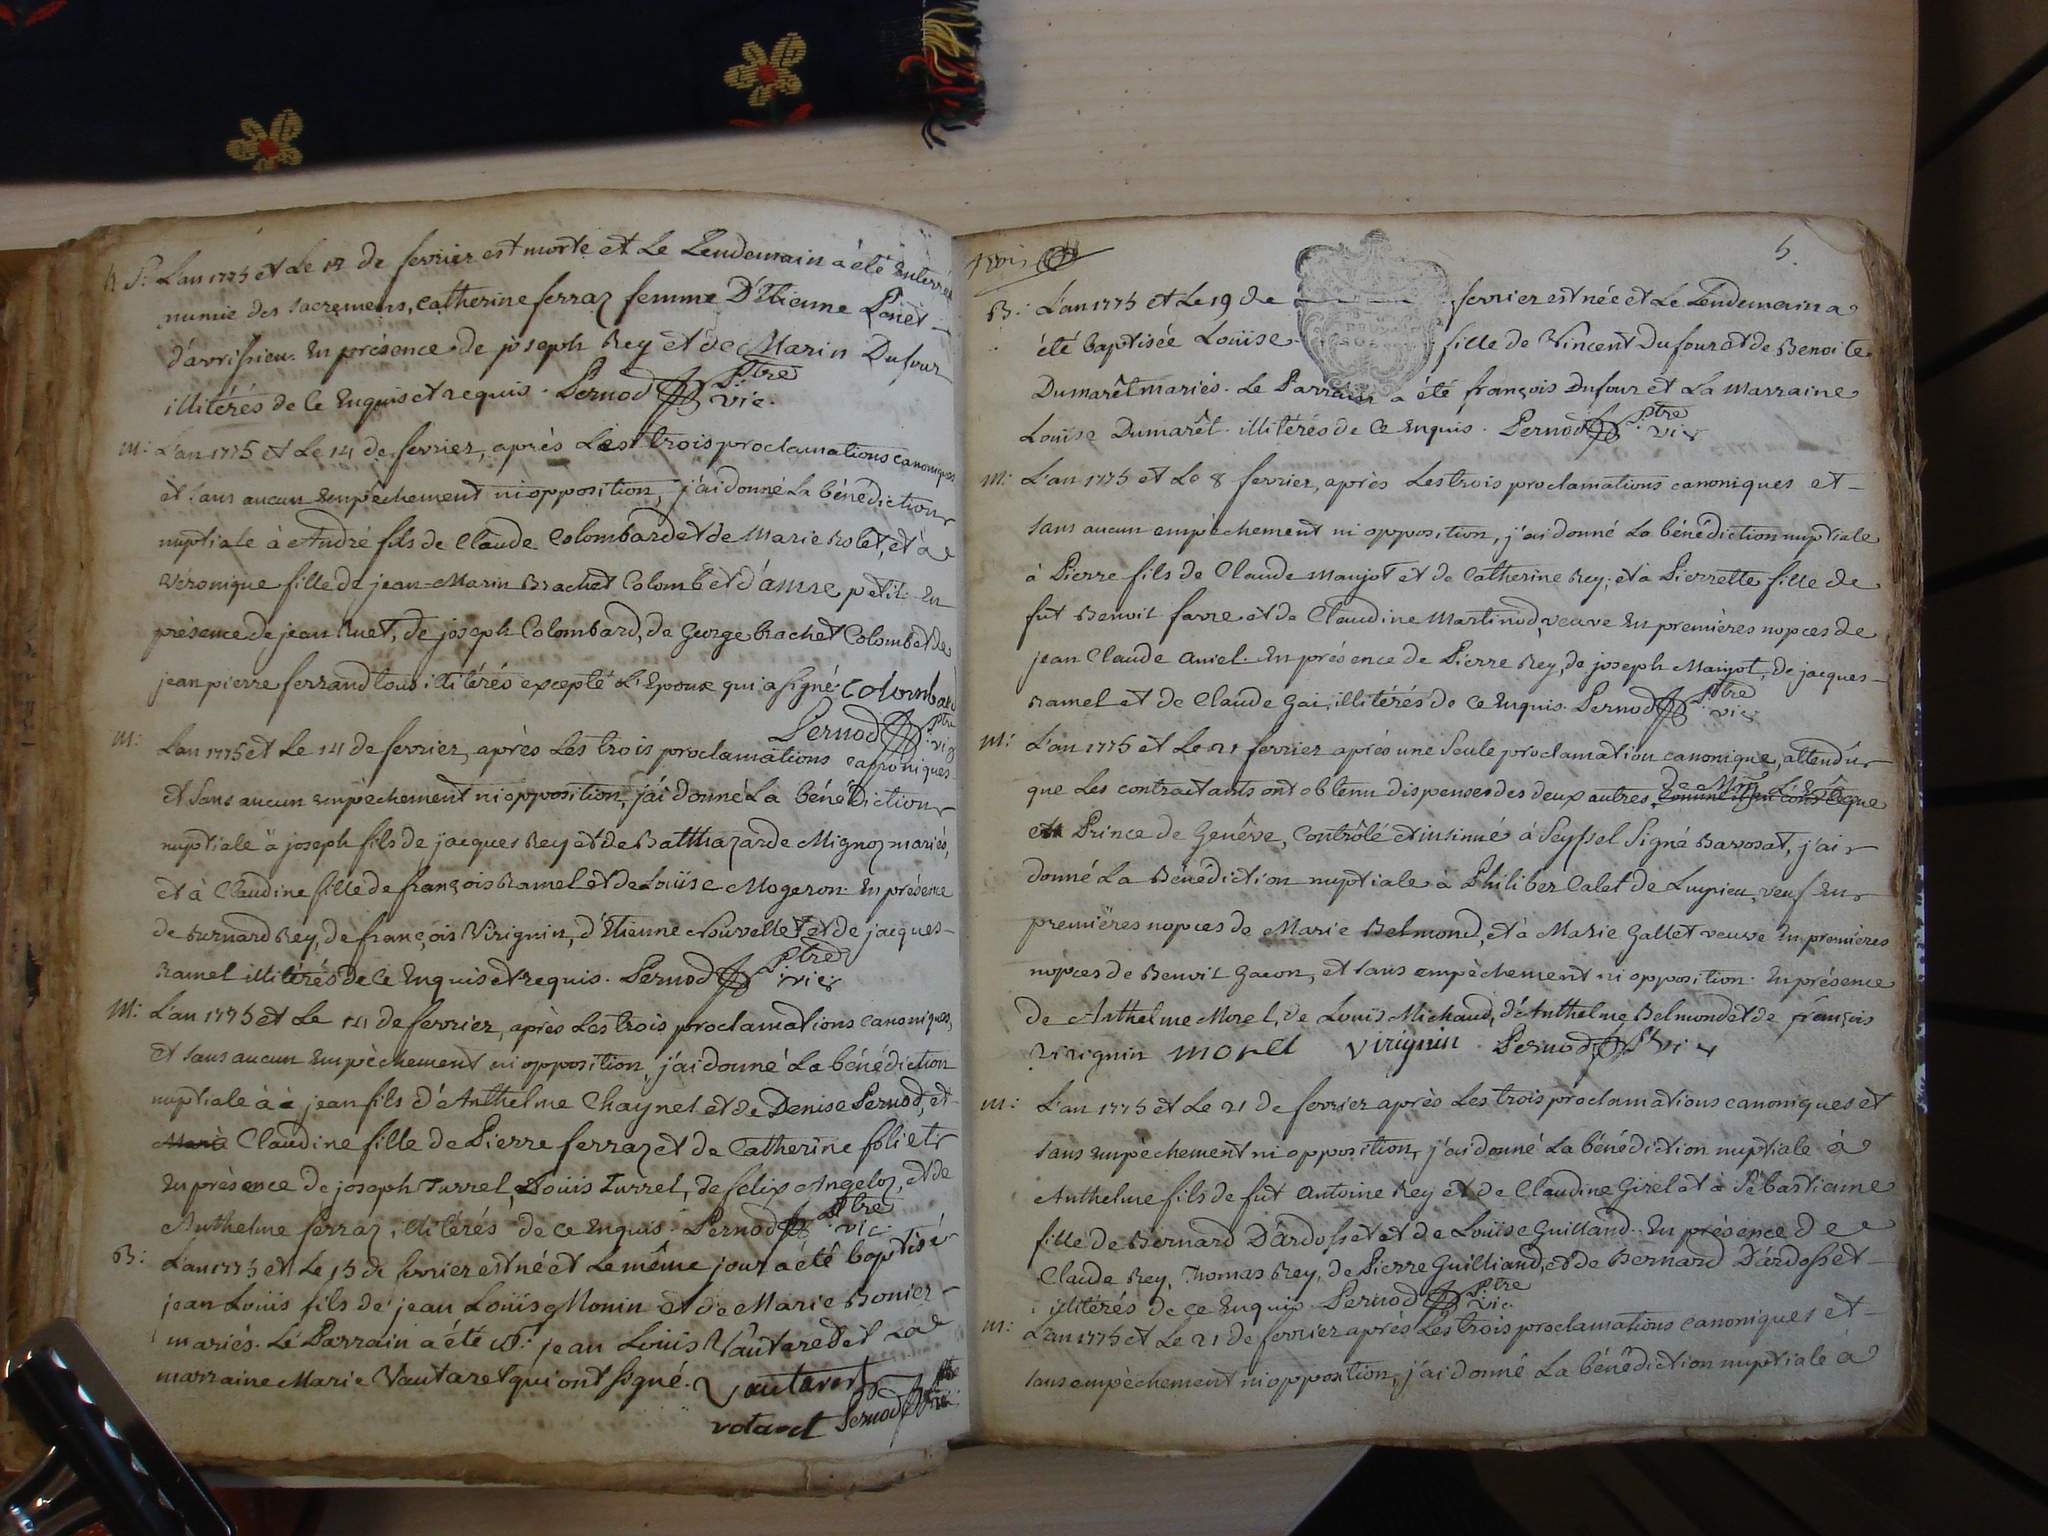 S: L'an 1775 et Le 12 de fevrier est morte et Le Lendemain a été Enterrée
munie des sacremens, catherine ferraz femme D'Etienne
d'avrissieu. En présence de joseph Rey et de Marin Dufour
illitérés de Ce Enquis et requis. Pernod ptre vic.
M: L'an 1775 et Le 14 de fevrier, après Les trois proclamations canoniques
et sans aucun Empêchement ni opposition, j'ai donné La bénédiction
nuptiale à André fils de Claude Colombard et de Marie Rolet, et à
Véronique fille de jean-Marin Brachet Colombet d'anne petit. En
présence de jean Huet, de joseph Colombard, de George brachet Colombet de
jean pierre ferrand tous illitérés excepté L'Epoux qui a signé. Colombard
Pernod ptre vic
M: L'an 1775 et Le 14 de fevrier, après Les trois proclamations canoniques
et sans aucun empêchement ni opposition, j'ai donné La bénédiction
nuptiale à joseph fils de jacques Rey et de Balthazarde Mignoz mariés,
et à Claudine fille de françois Ramel et de Louise Mogeron. En présence
de Burnard Rey, de françois Virignin, d'Etienne Nouvellet et de jacques
Ramel illitérés de Ce Enquis et requis. Pernod ptre vic
M: L'an 1775 et Le 14 de fevrier, après Les trois proclamations canoniques,
et sans aucun Empêchement ni opposition, j'ai donné La bénédiction
nuptiale à jean fils d'Anthelme Chaynel et de Denise Pernod, et
Marie Claudine fille de Pierre ferraz et de Catherine foliet
En présence de joseph Turrel, Louis Turrel, de felix Angeloz, et de
Anthelme ferraz, illitérés de Ce Enquis. Pernod ptre vic.
B: L'an 1775 et Le 15 de fevrier est né et Le même jour a été baptisé
jean Louis fils de jean Louis Monin et de Marie Bonier
mariés. Le Parrain a été jean Louis Vautaret et La
marraine Marie Vautaret qui ont signé. Vautaret
votaret Pernod ptre vic
5.
B: L'an 1775 et Le 19 de fevrier est née et Le Lendemain a
été baptisée Louise fille de Vincent Dufour et de Benoite
Dumarêt mariés. Le Parrain a été françois Dufour et La Marraine
Louise Dumarêt. illitérés de Ce Enquis. Pernod ptre vic
M: L'an 1775 et Le 8 fevrier, après Les trois proclamations canoniques et
sans aucun empêchement ni opposition, j'ai donné La bénédiction nuptiale
à Pierre fils de Claude Maujot et de Catherine Rey, et à Pierrette fille de
fut Benoit favre et de Claudine Martinod, veuve En premières nopces de
jean Claude Aniel. En présence de Pierre Rey, de joseph Maujot, de jacques
Ramel et de Claude Gai, illitérés de Ce Enquis. Pernod ptre vic
M: L'an 1775 et Le 21 fevrier après une seule proclamation canonique, attendu
que Les contractants ont obtenu dispenses des deux autres, de Mgr L'Evêque
et Prince de Genêve, Contrôlé et insinué à Seyssel signé Barosat, j'ai
donné La Bénédiction nuptiale à Philiber Calet de Lupieu, veuf En
premières nopces de Marie Belmond, et à Marie Gallet veuve En premières
nopces de Benoit Gacon, et sans empêchement ni opposition. En présence
de Anthelme Morel, de Louis Michaud, d'Anthelme Belmond et de françois
Virignin morel virignin Pernod ptre vic
M: L'an 1775 et Le 21 de fevrier après Les trois proclamations canoniques et
sans Empêchement ni opposition, j'ai donné La bénédiction nuptiale à
Anthelme fils de fut Antoine Rey et de Claudine Girel et à Sébastienne
fille de Bernard D'ardosset et de Louise Guilland. En présence de
Claude Rey, Thomas Rey, de Pierre Guilliand, et de Bernard D'ardosset
illitérés de Ce Enquis Pernod ptre vic.
M: L'an 1775 et Le 21 de fevrier après Les trois proclamations canoniques et
sans empêchement ni opposition, j'ai donné La bénédiction nuptiale à